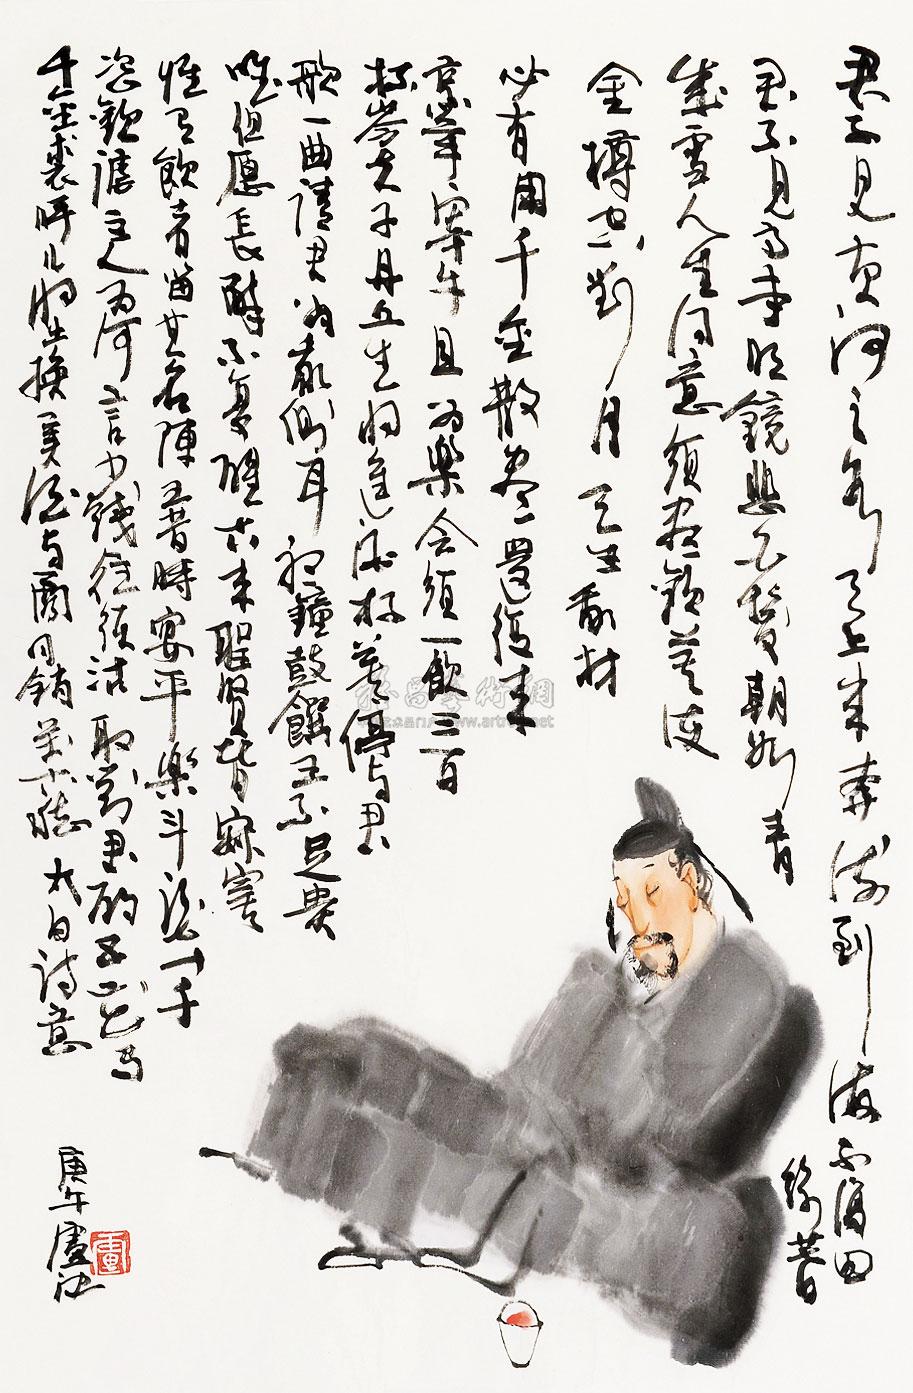 君不见黄河之水天上来奔流到海不復回
君不见高堂明鏡悲白髮朝如青
絲暮
成雪人生得意須尽歡莫使
金樽空對月天生我材
必有用千金散尽還復来
烹羊宰牛且为樂会須一飲三百
杯岑夫子丹丘生将進酒杯莫停与君
歌一曲請君为我側耳听鐘鼓饌玉不足貴
但愿長醉不复醒古来聖賢皆寂寞
惟有飲者留其名陳王昔時宴平樂斗酒十千
恣歡謔主人为何言少錢徑須沽取對君酌五花马
千金裘呼儿将出換美酒与爾同銷万古愁 太白詩意
庚午盧沉